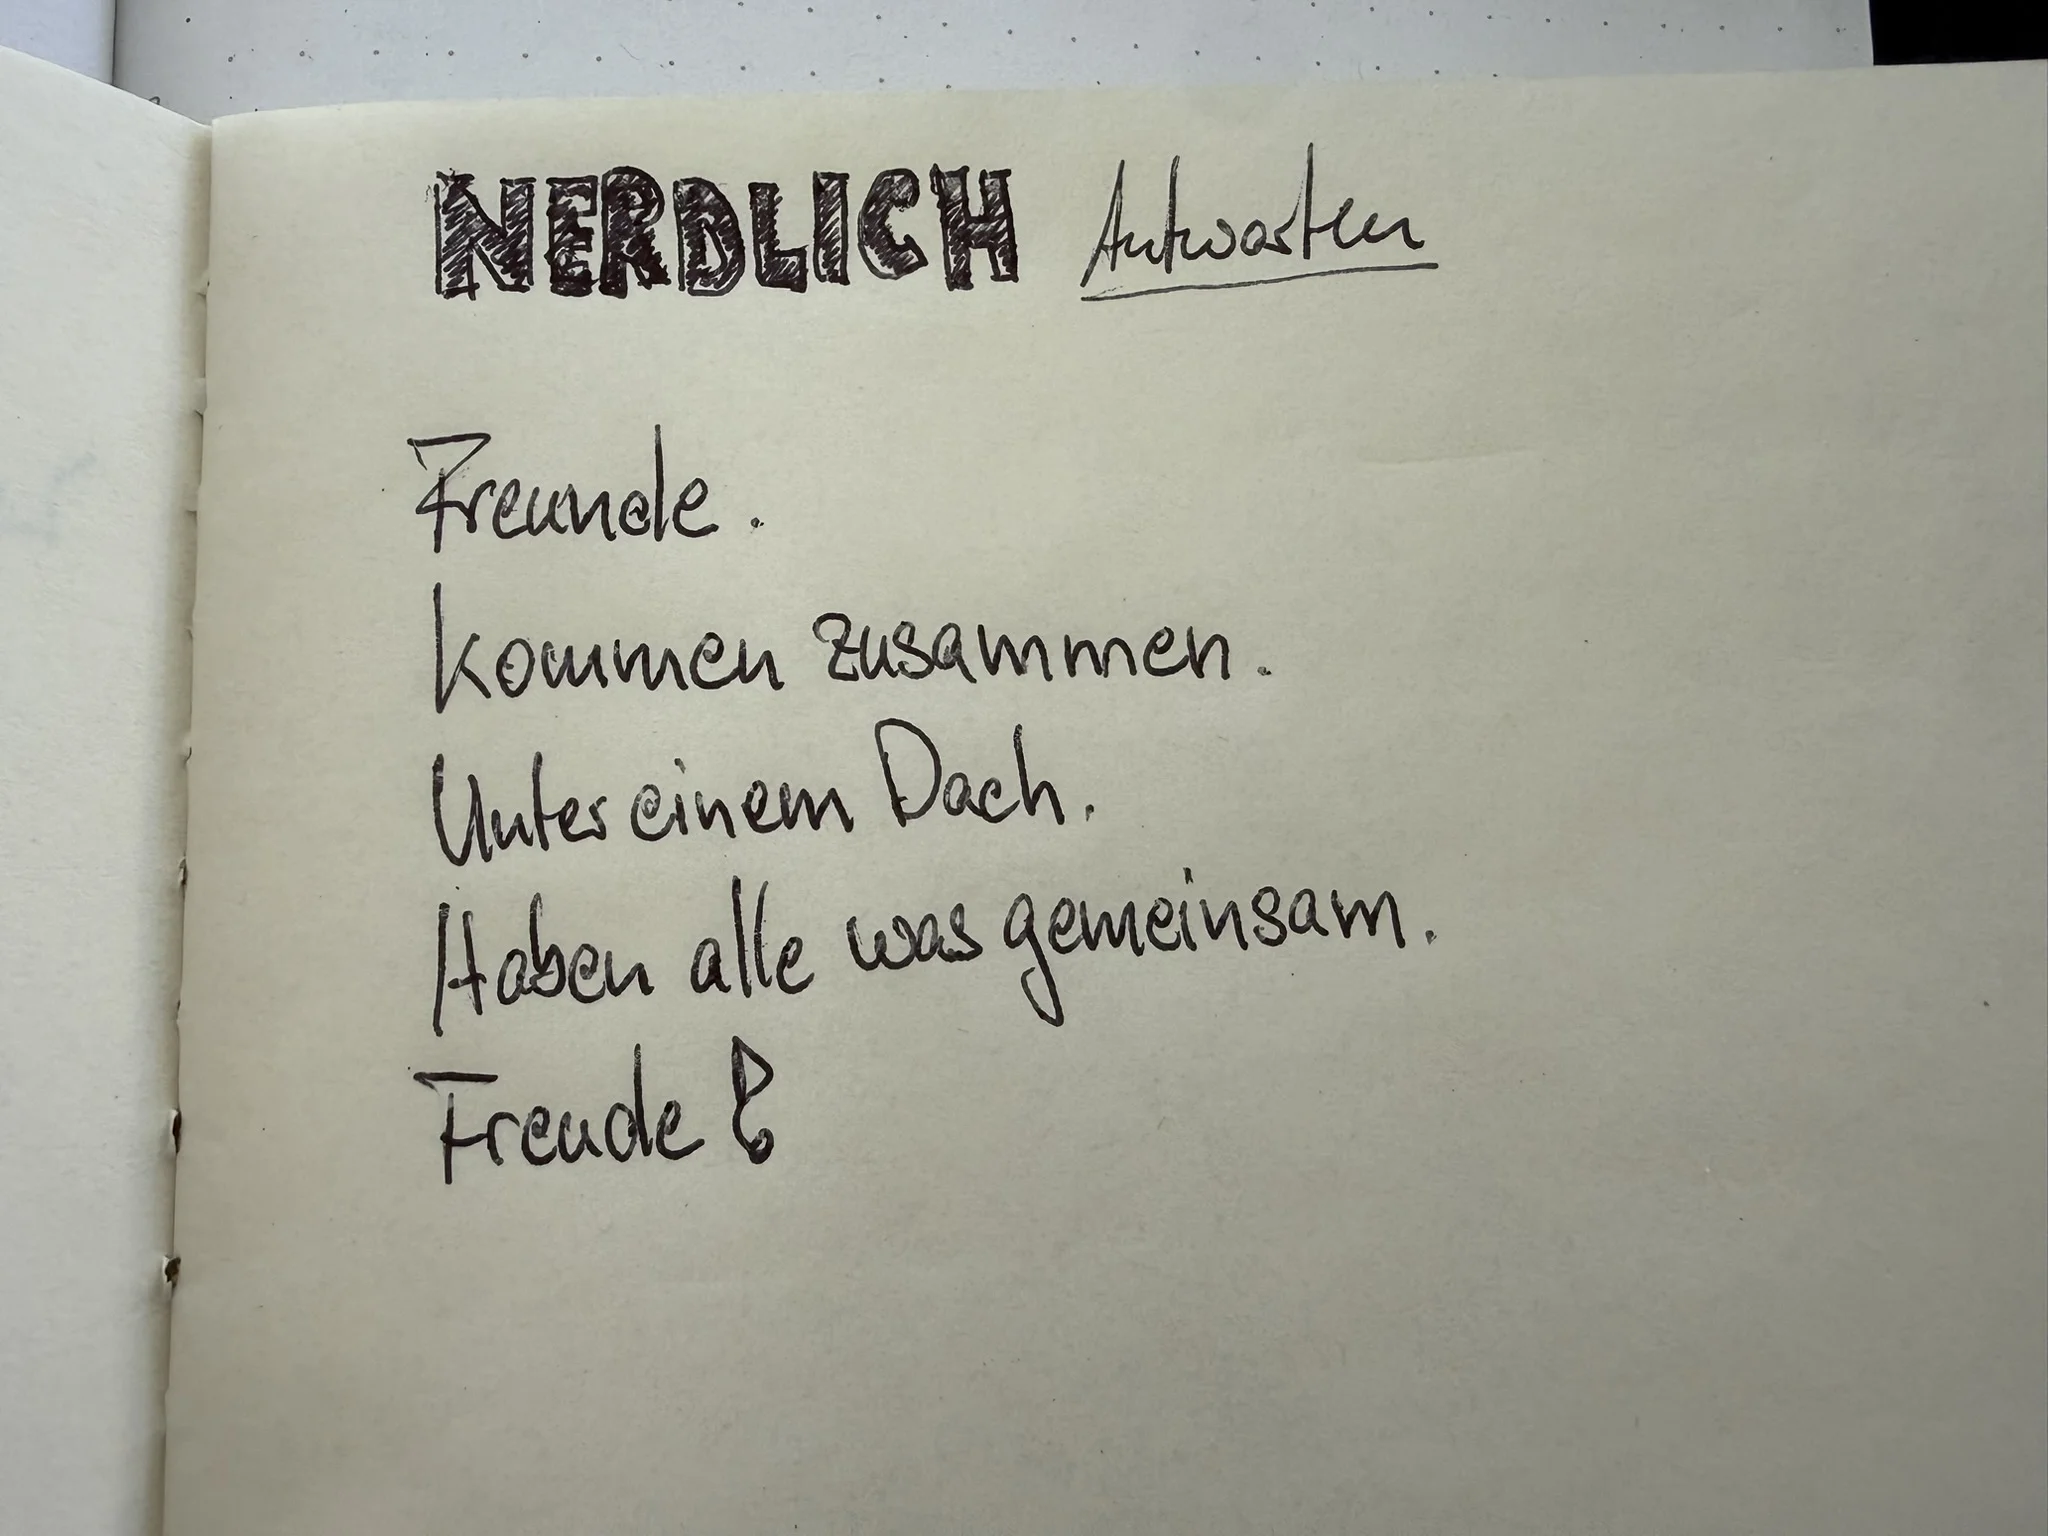 NERDLICH Antworten
Freunde.
kommen zusammen.
Unter einem Dach.
Haben alle was gemeinsam.
Freude!